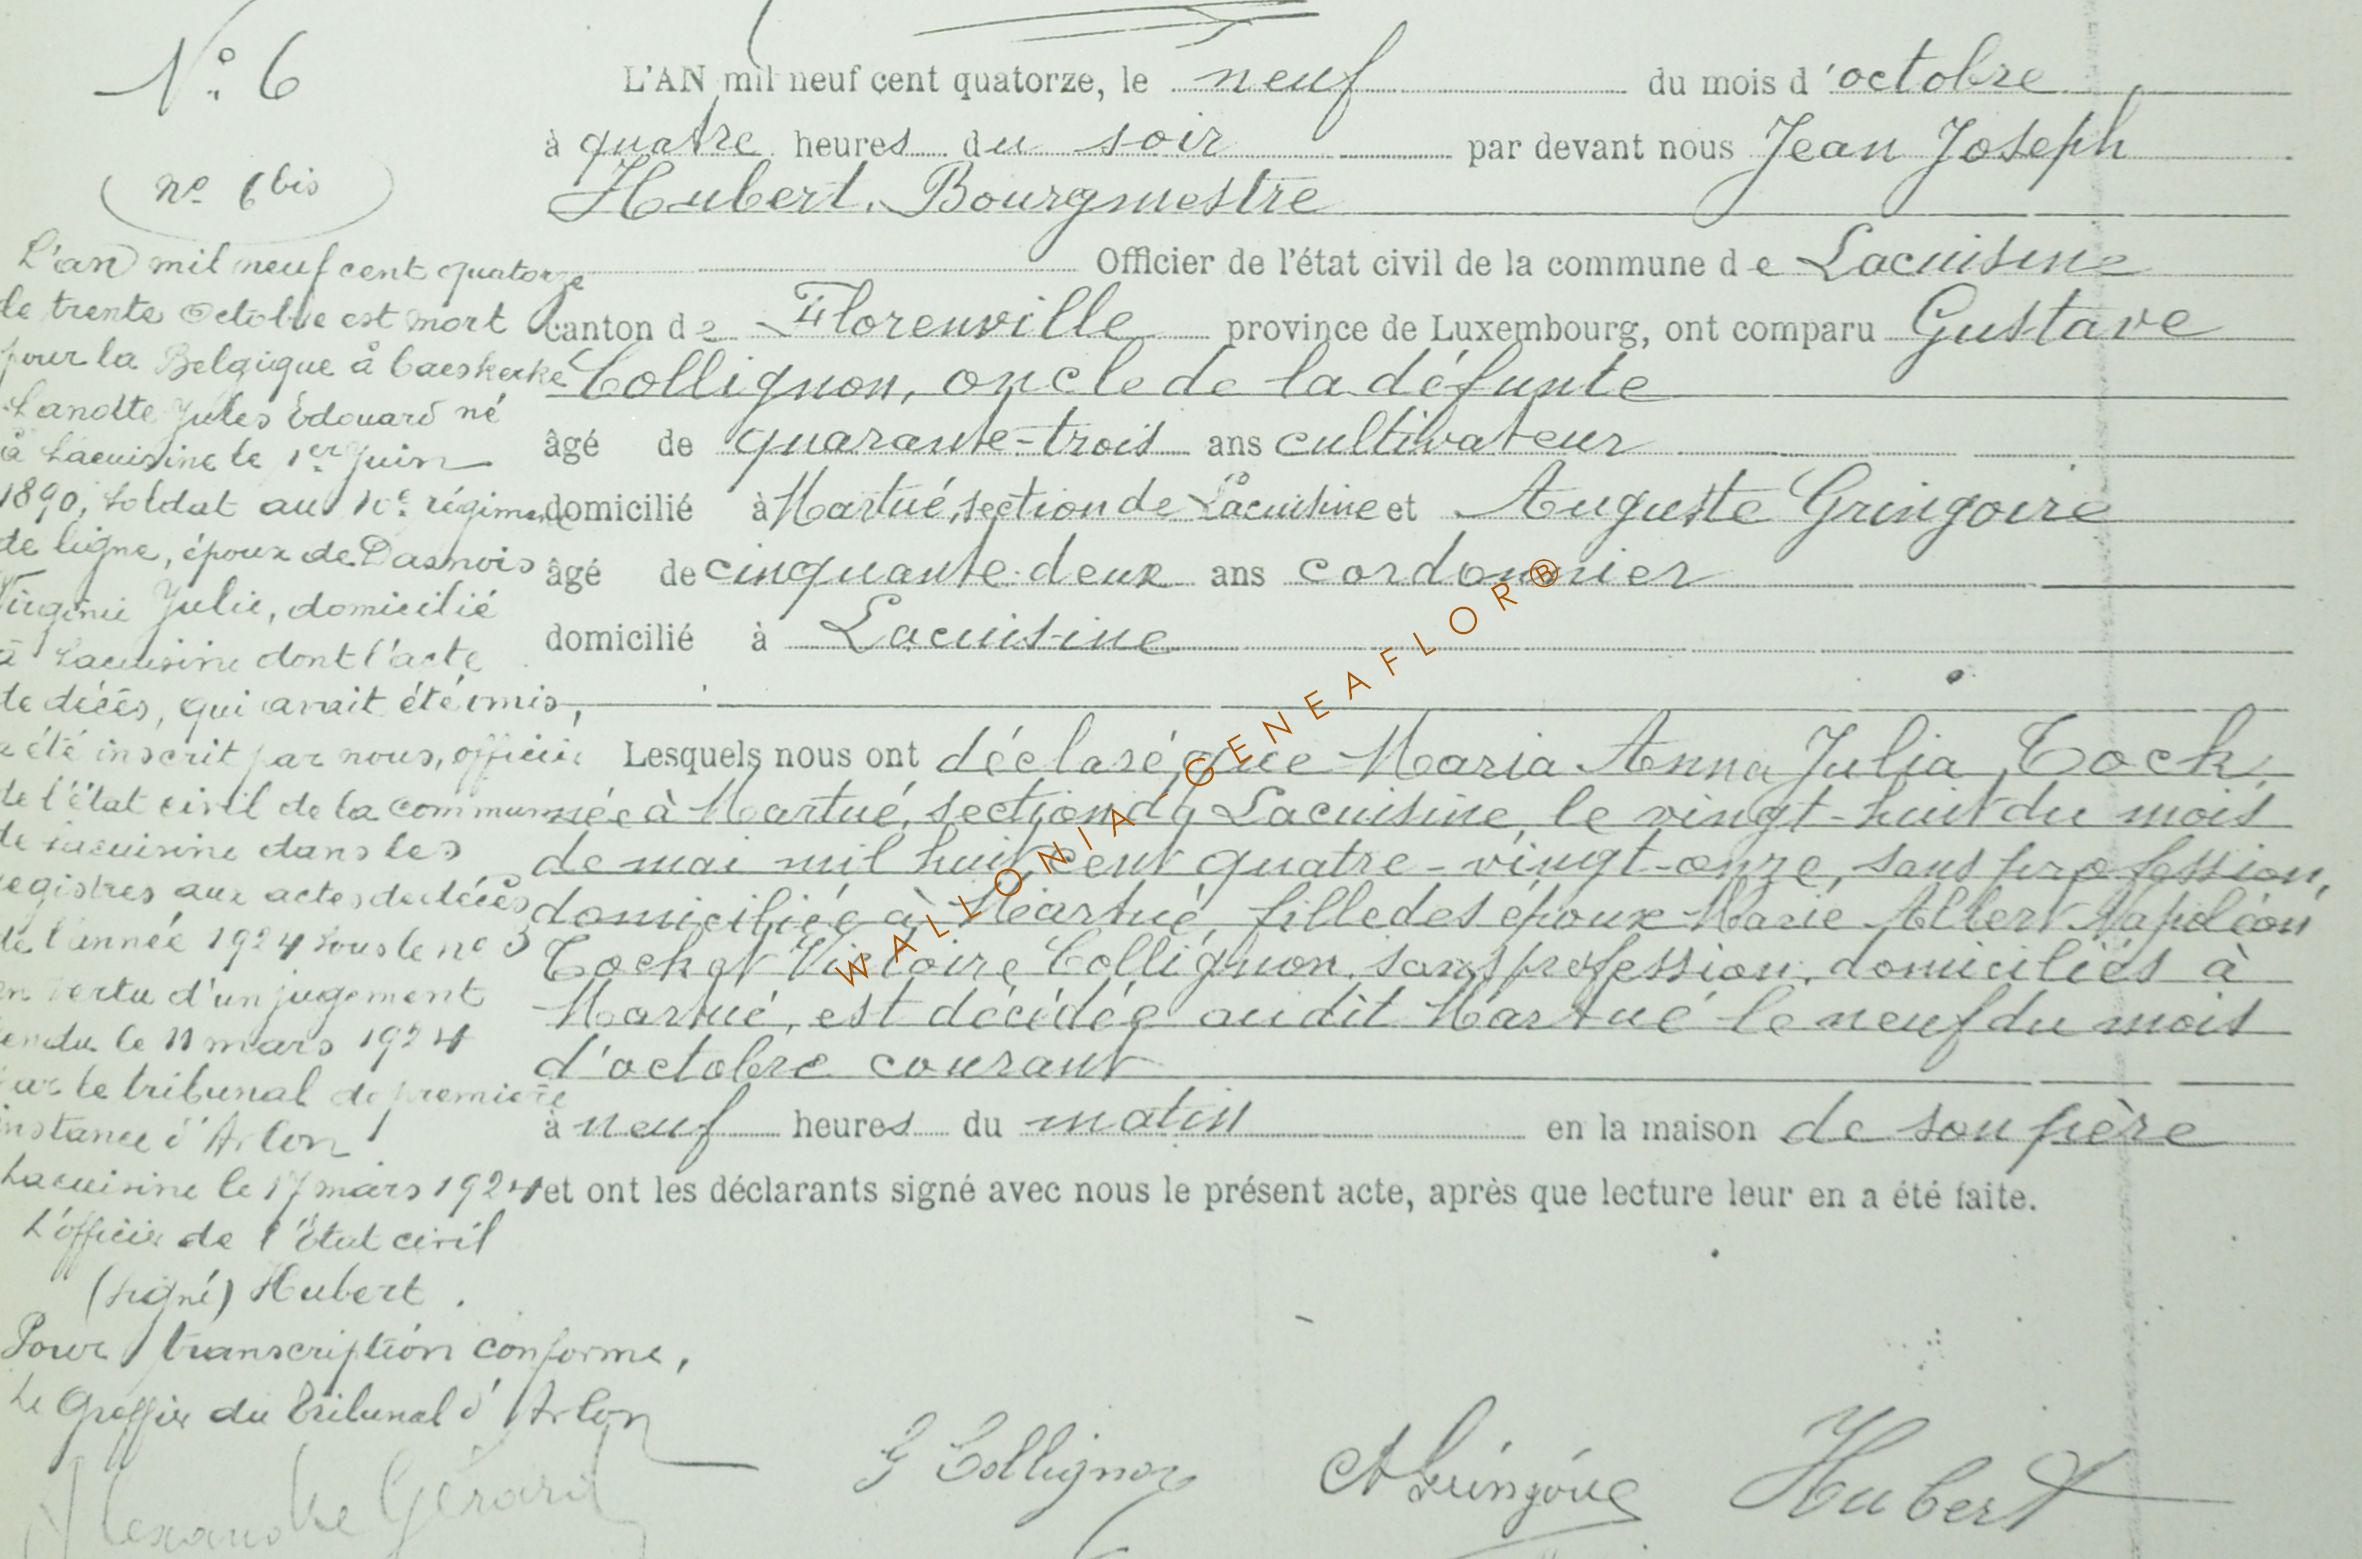 N° 6
L'AN mil neuf cent quatorze, le neuf du mois d'octobre
à quatre heures du soir par devant nous Jean Joseph
Hubert, Bourgmestre
Officier de l'état civil de la commune de Lacuisine
canton de Florenville province de Luxembourg, ont comparu Gustave
Collignon, oncle de la défunte
âgé de quarante-trois ans cultivateur
domicilié à Martué, section de Lacuisine et Auguste Gringoire
âgé de cinquante-deux ans cordonnier
domicilié à Lacuisine
Lesquels nous ont déclaré que Maria Anna Julia Tock,
née à Martué, section de Lacuisine, le vingt-huit du mois
de mai mil huit cent quatre-vingt-onze, sans profession,
domiciliée à Martué, fille des époux Marie Albert Napoléon
Tock et Victoire Collignon, sans profession, domiciliés à
Martué, est décédée audit Martué le neuf du mois
d'octobre courant
à neuf heures du matin en la maison de son père
et ont les déclarants signé avec nous le présent acte, après que lecture leur en a été faite.
G Collignon A Gringoire Hubert
n° 6 bis
L'an mil neuf cent quatorze
le trente Octobre est mort
pour la Belgique à Caeskerke
Lanotte Jules Edouard né
à Lacuisine le 1er Juin
1890, soldat au 10e régiment
de ligne, époux de Dasnois
Virginie Julie, domicilié
à Lacuisine dont l'acte
de décès, qui avait été omis,
a été inscrit par nous, officier
de l'état civil de la commune
de Lacuisine dans les
registres aux actes de décès
de l'année 1924 sous le n° 3
en vertu d'un jugement
rendu le 11 mars 1924
par le tribunal de première
instance d'Arlon
Lacuisine le 17 mars 1924
L'officier de l'Etat civil
(signé) Hubert.
Pour transcription conforme,
Le Greffier du Tribunal d'Arlon
Alexandre Gérard
WALLONIA-GENEAFLOR®